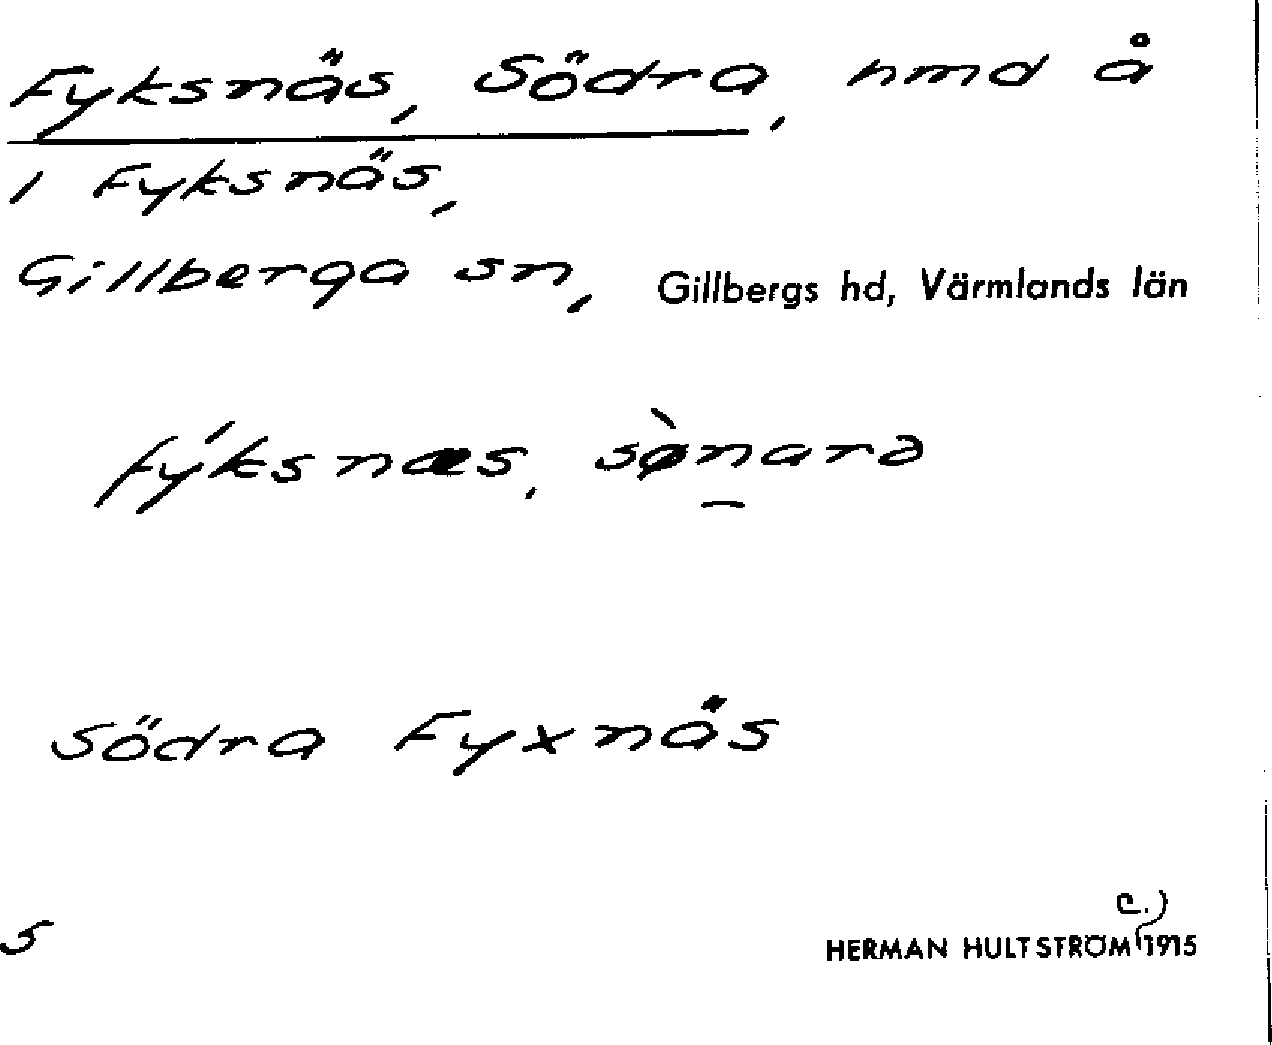 Fyksnäs, Södra, hmd å
i Fyksnäs,
Gillberga sn, Gillbergs hd, Värmlands län
fýksnæs, sø̀narə
Södra Fyxnäs
c.)
5 HERMAN HULTSTRÖM 1915